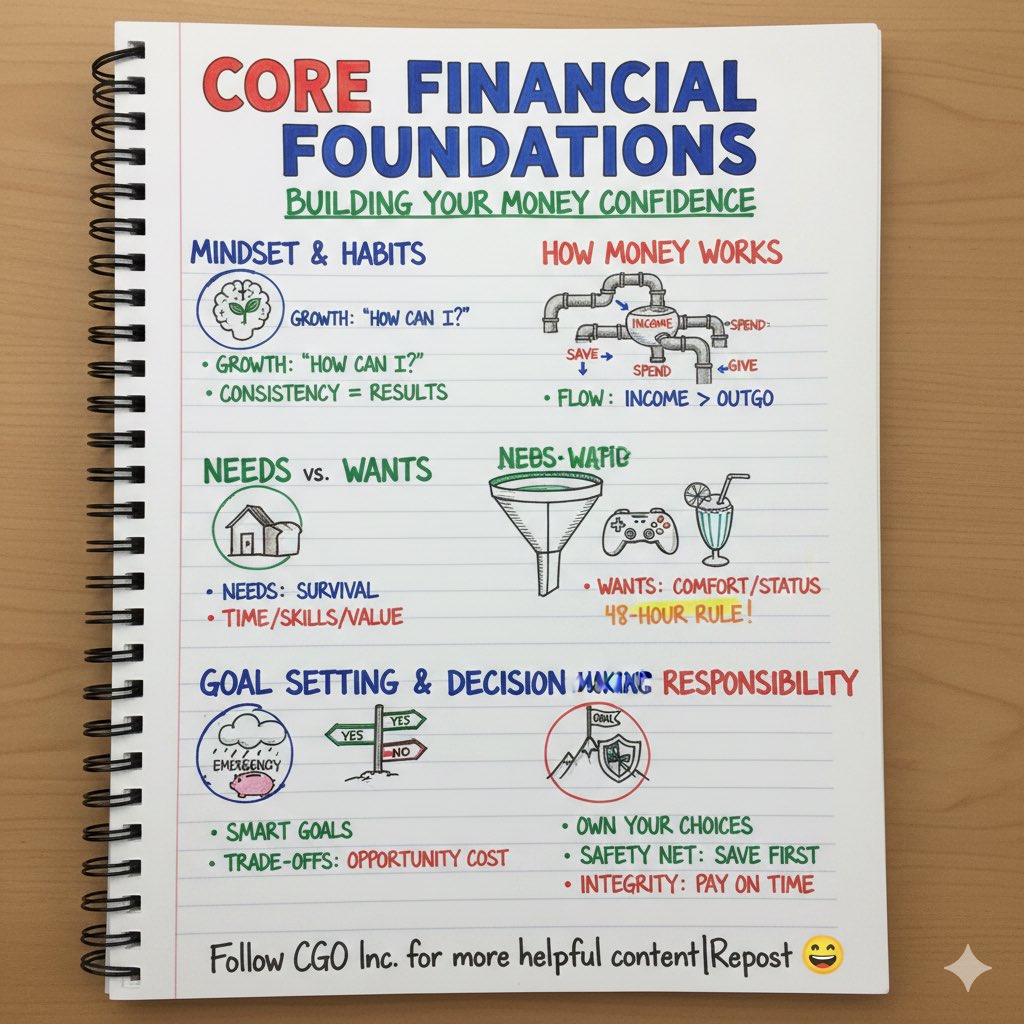 CORE FINANCIAL
FOUNDATIONS
BUILDING YOUR MONEY CONFIDENCE
MINDSET & HABITS
GROWTH: "HOW CAN I?"
• GROWTH: "HOW CAN I?"
• CONSISTENCY = RESULTS
HOW MONEY WORKS
INCOME
SPEND:
SAVE
SPEND
GIVE
• FLOW: INCOME > OUTGO
NEEDS vs. WANTS
• NEEDS: SURVIVAL
• TIME/SKILLS/VALUE
• WANTS: COMFORT/STATUS
48-HOUR RULE!
GOAL SETTING & DECISION
RESPONSIBILITY
YES
YES
NO
• SMART GOALS
• TRADE-OFFS: OPPORTUNITY COST
• OWN YOUR CHOICES
• SAFETY NET: SAVE FIRST
• INTEGRITY: PAY ON TIME
Follow CGO Inc. for more helpful content|Repost 😄